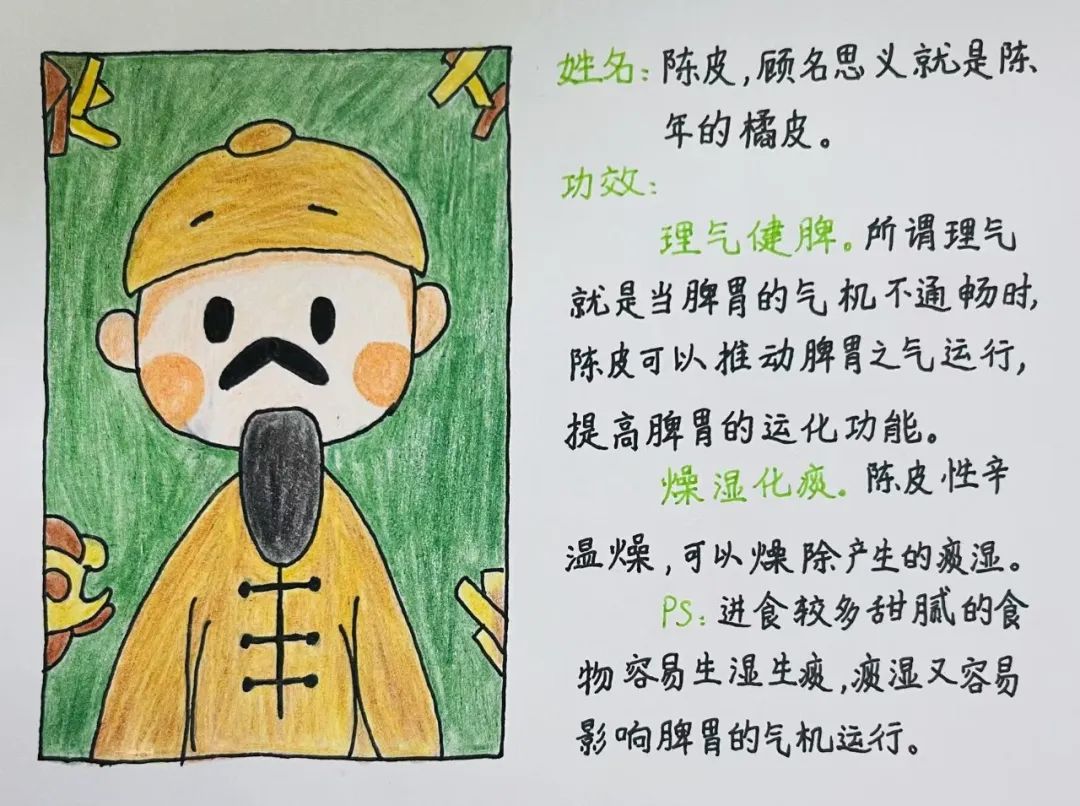 姓名：陈皮，顾名思义就是陈
年的橘皮。
功效：
理气健脾。所谓理气
就是当脾胃的气机不通畅时，
陈皮可以推动脾胃之气运行，
提高脾胃的运化功能。
燥湿化痰。陈皮性辛
温燥，可以燥除产生的痰湿。
PS：进食较多甜腻的食
物容易生湿生痰，痰湿又容易
影响脾胃的气机运行。